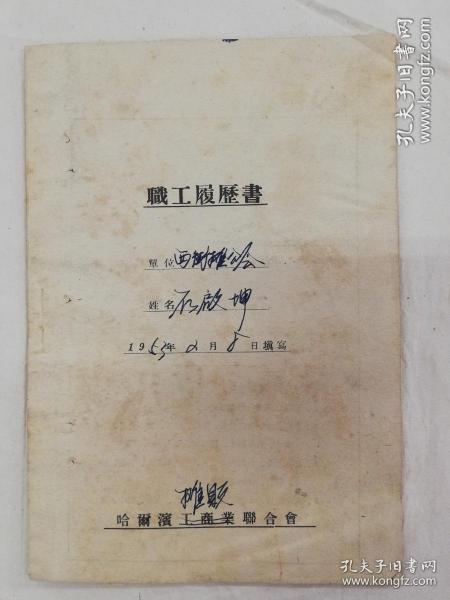 職工履歷書
單位
姓名 石啟坤
1953年2月8日填寫
摊贩
哈爾濱工商業聯合會
孔夫子旧书网
www.kongfz.com
孔夫子旧书网
www.kongfz.com